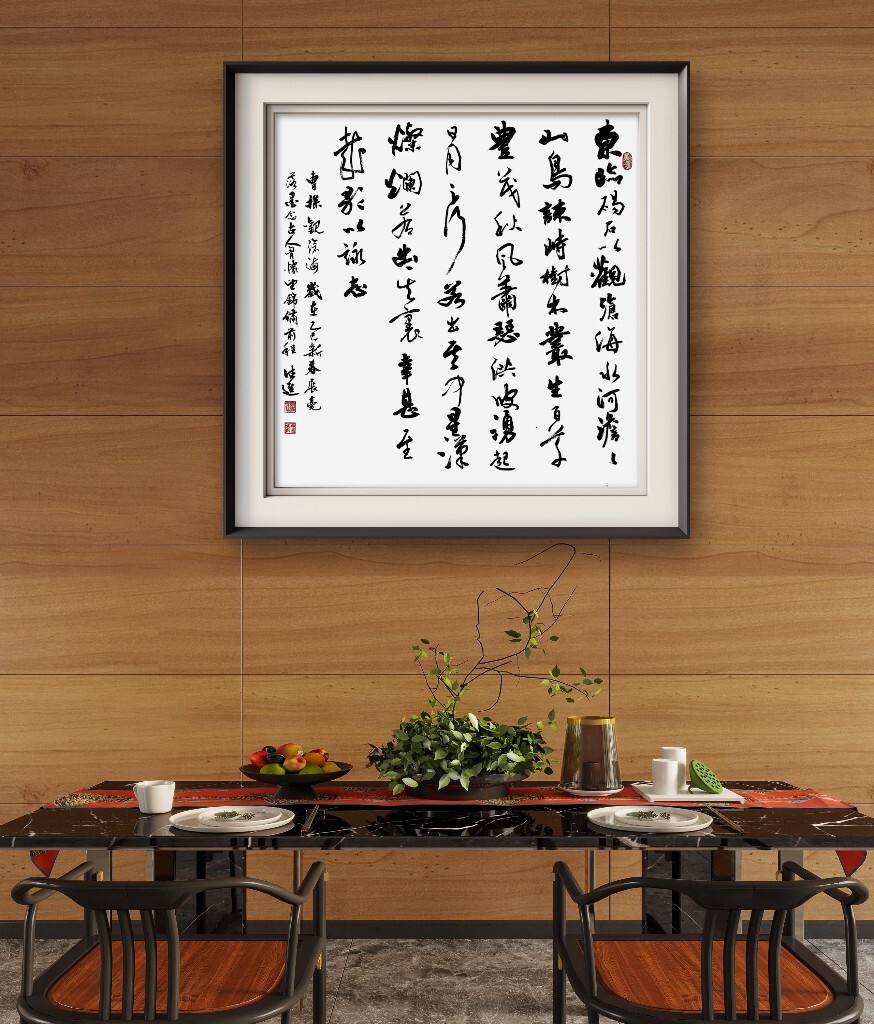 東臨碣石以觀滄海水河澹〻
山島竦峙樹木叢生百草
豐茂秋風蕭瑟洪波湧起
日月之行若出其中星漢
燦爛若出其裏幸甚至
哉歌以詠志
曹操觀滄海歲在乙巳新春
落墨念古人胸懷望錦繡前程